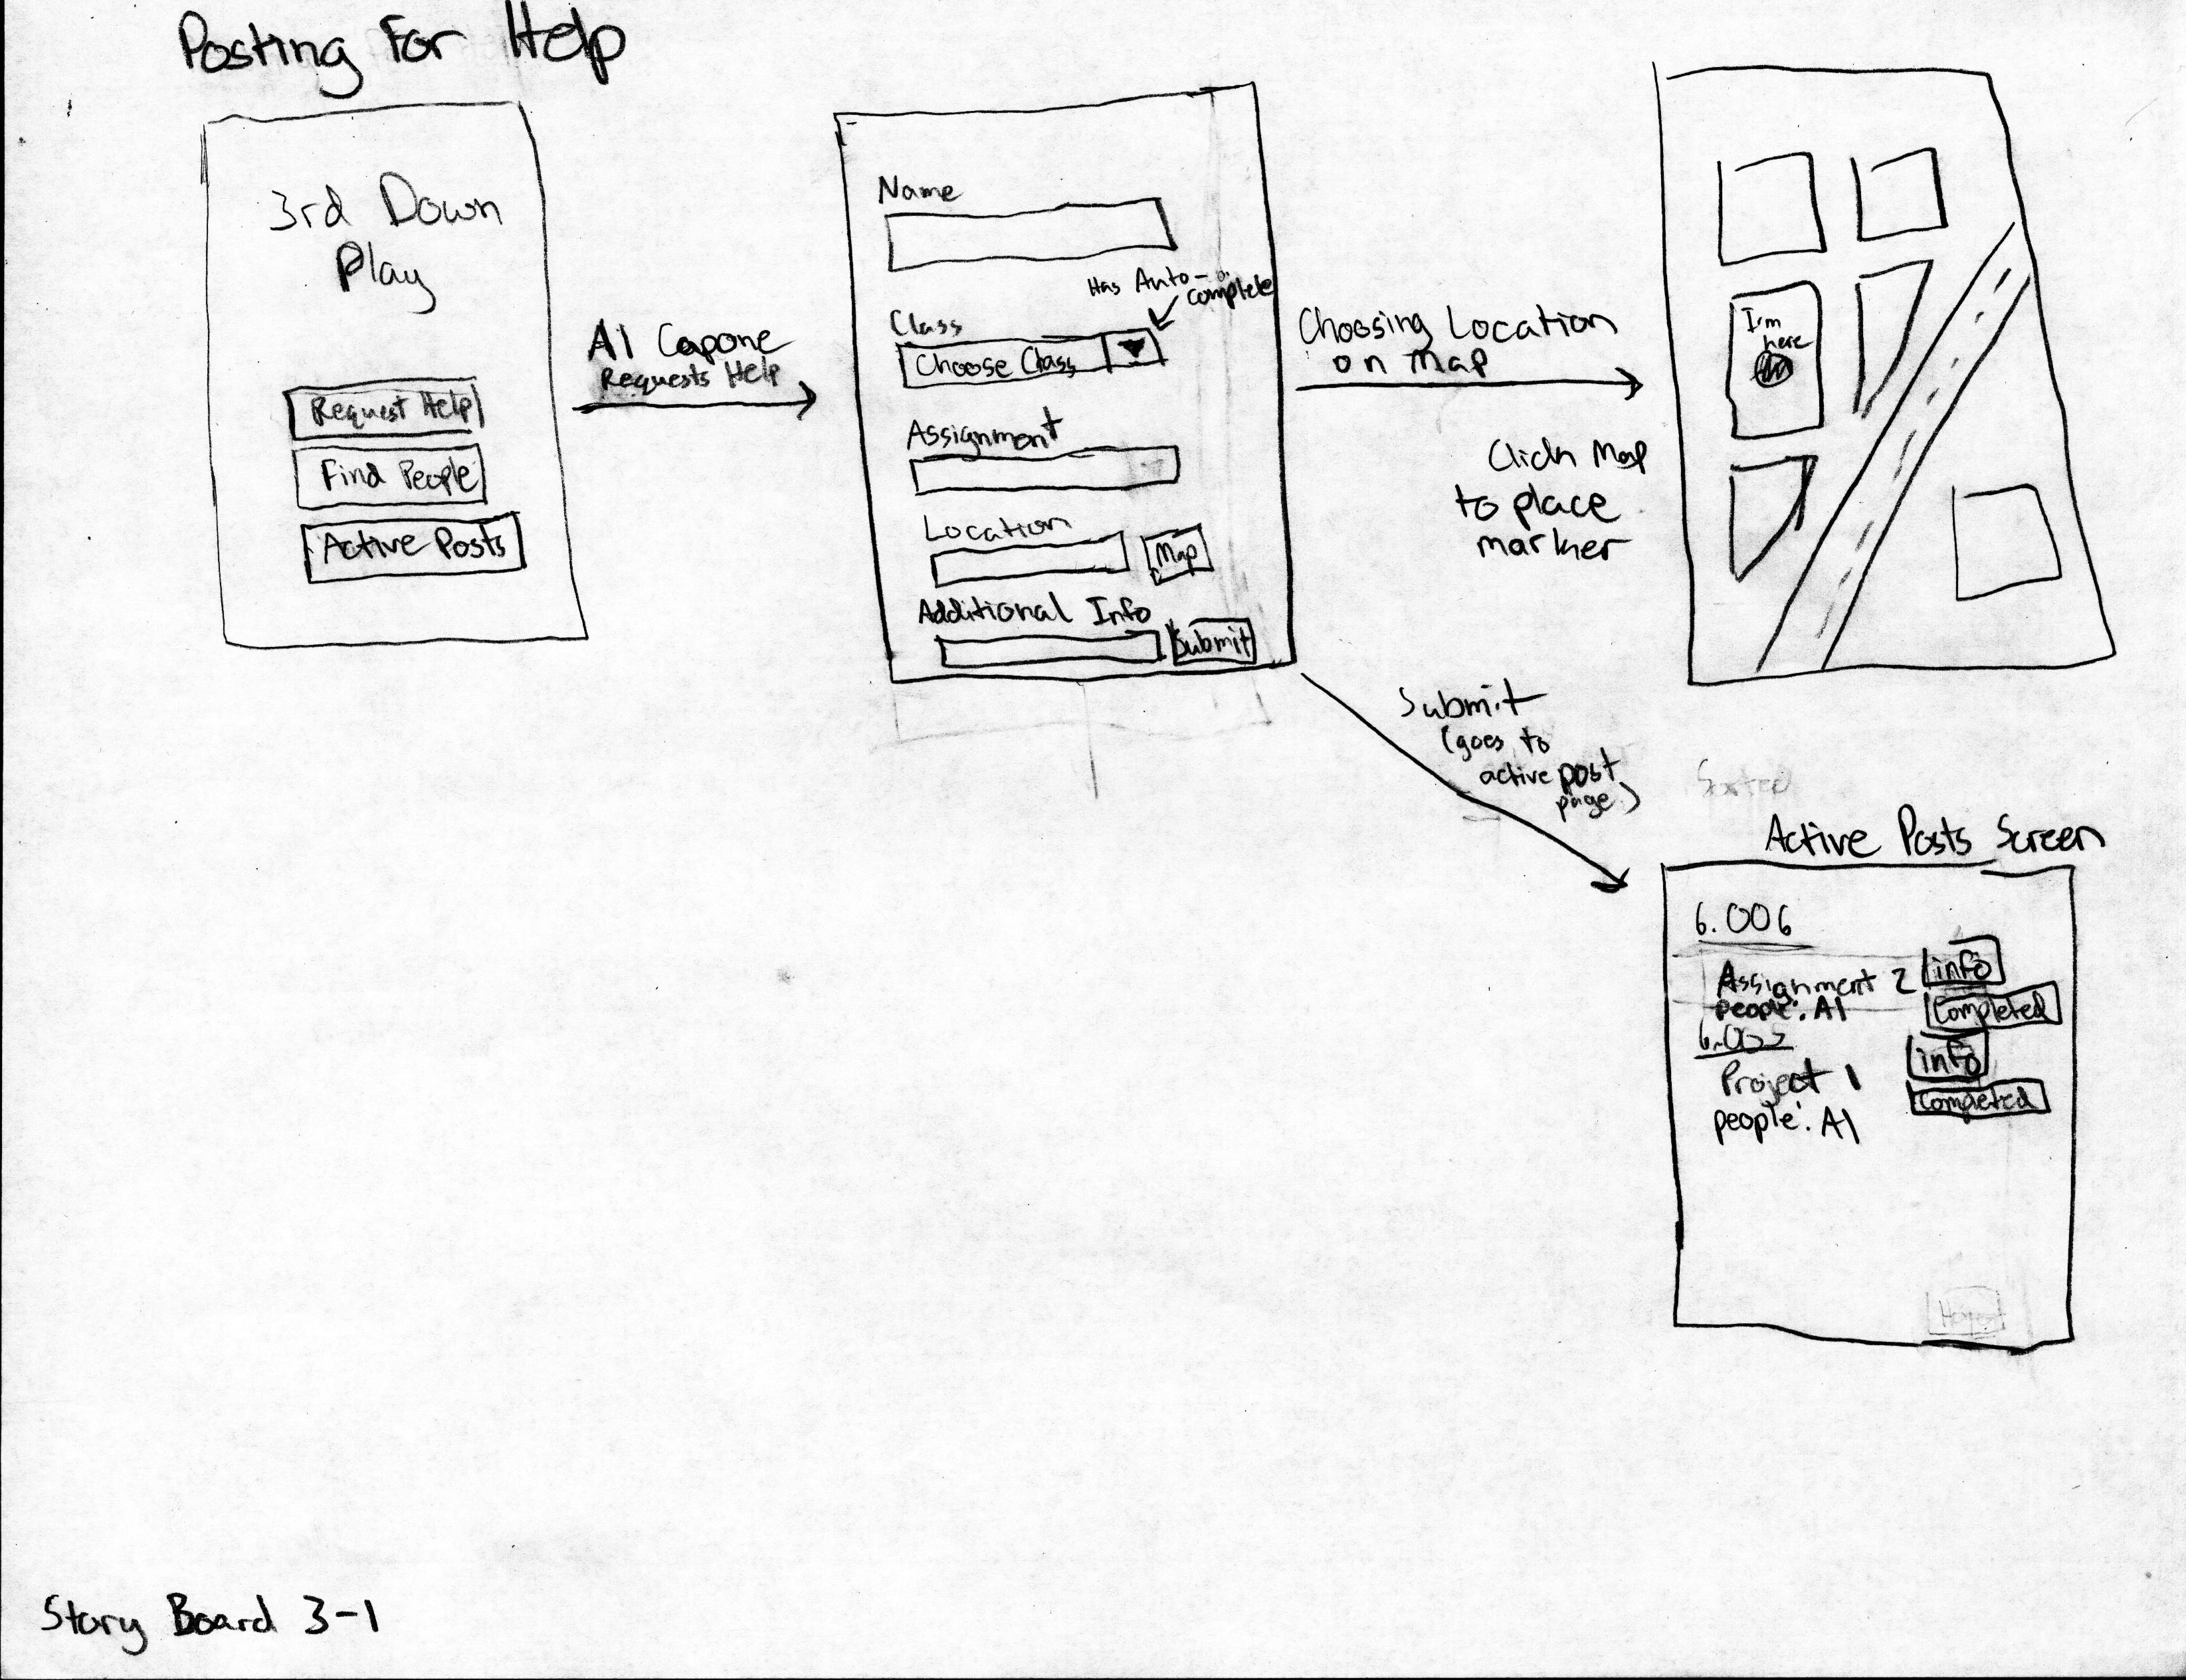 Posting For Help
3rd Down
Play
Request Help
Find People
Active Posts
Al Capone
Requests Help
Name
Has Auto-
complete
Class
Choose Class
Assignment
Location
Map
Additional Info
Submit
Choosing Location
on Map
Click Map
to place
marker
I'm
here
Submit
(goes to
active post
page)
Active Posts Screen
6.006
Assignment 2 info
people: Al Completed
info
Project 1
Completed
people: Al
Story Board 3-1